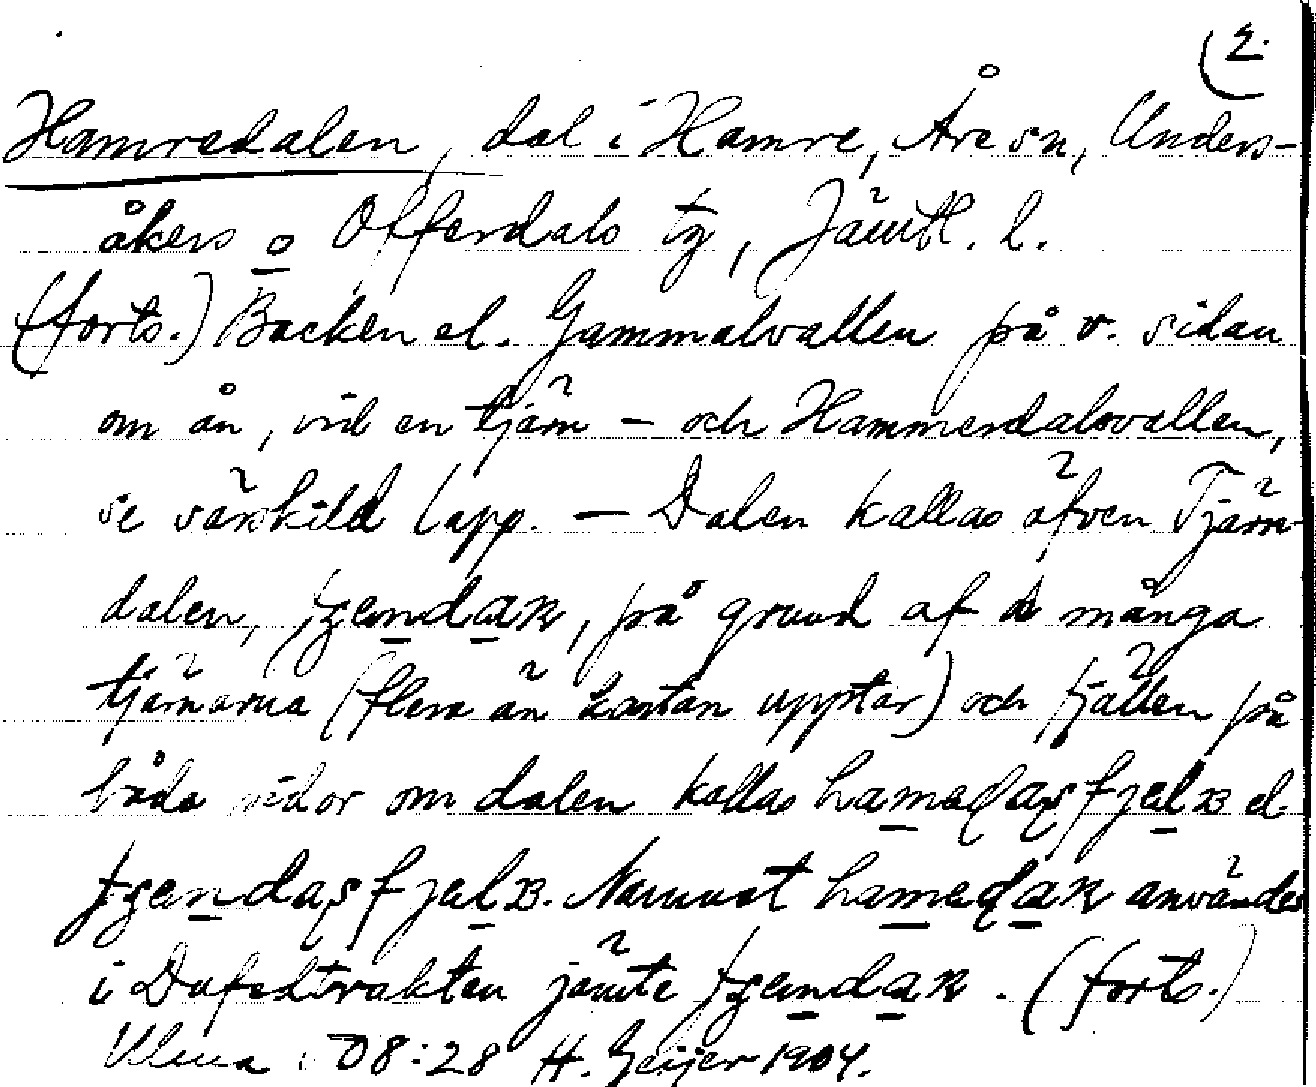 (2.
Hamredalen, dal i Hamre, Åre sn, Unders-
åkers o Offerdals tg, Jämtl. l.
(forts.) Backen el. Gammalvallen på v. sidan
om ån, vid en tjärn – och Hammerdalsvallen,
se särskild lapp. – Dalen kallas äfven Tjärn
dalen, på grund af de många
tjärnarna (flera än kartan upptar) och fjällen på
båda sidor om dalen kallas el
Namnet användes
i Dufedtrakten jämte (forts.)
08:28 H. Geijer 1904.